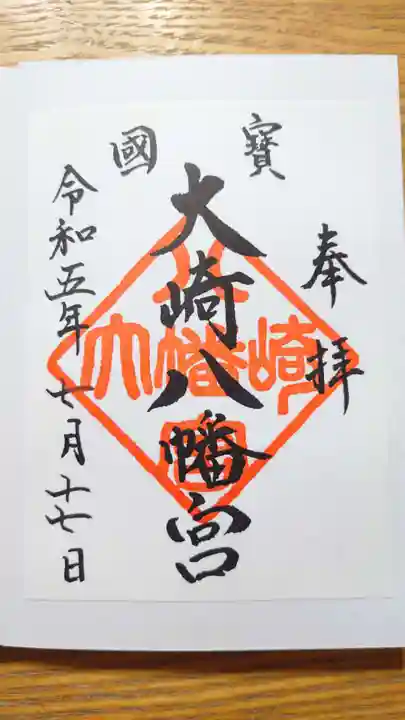 奉拝
國寶
大崎八幡宮
令和五年七月十七日
大崎八幡宮